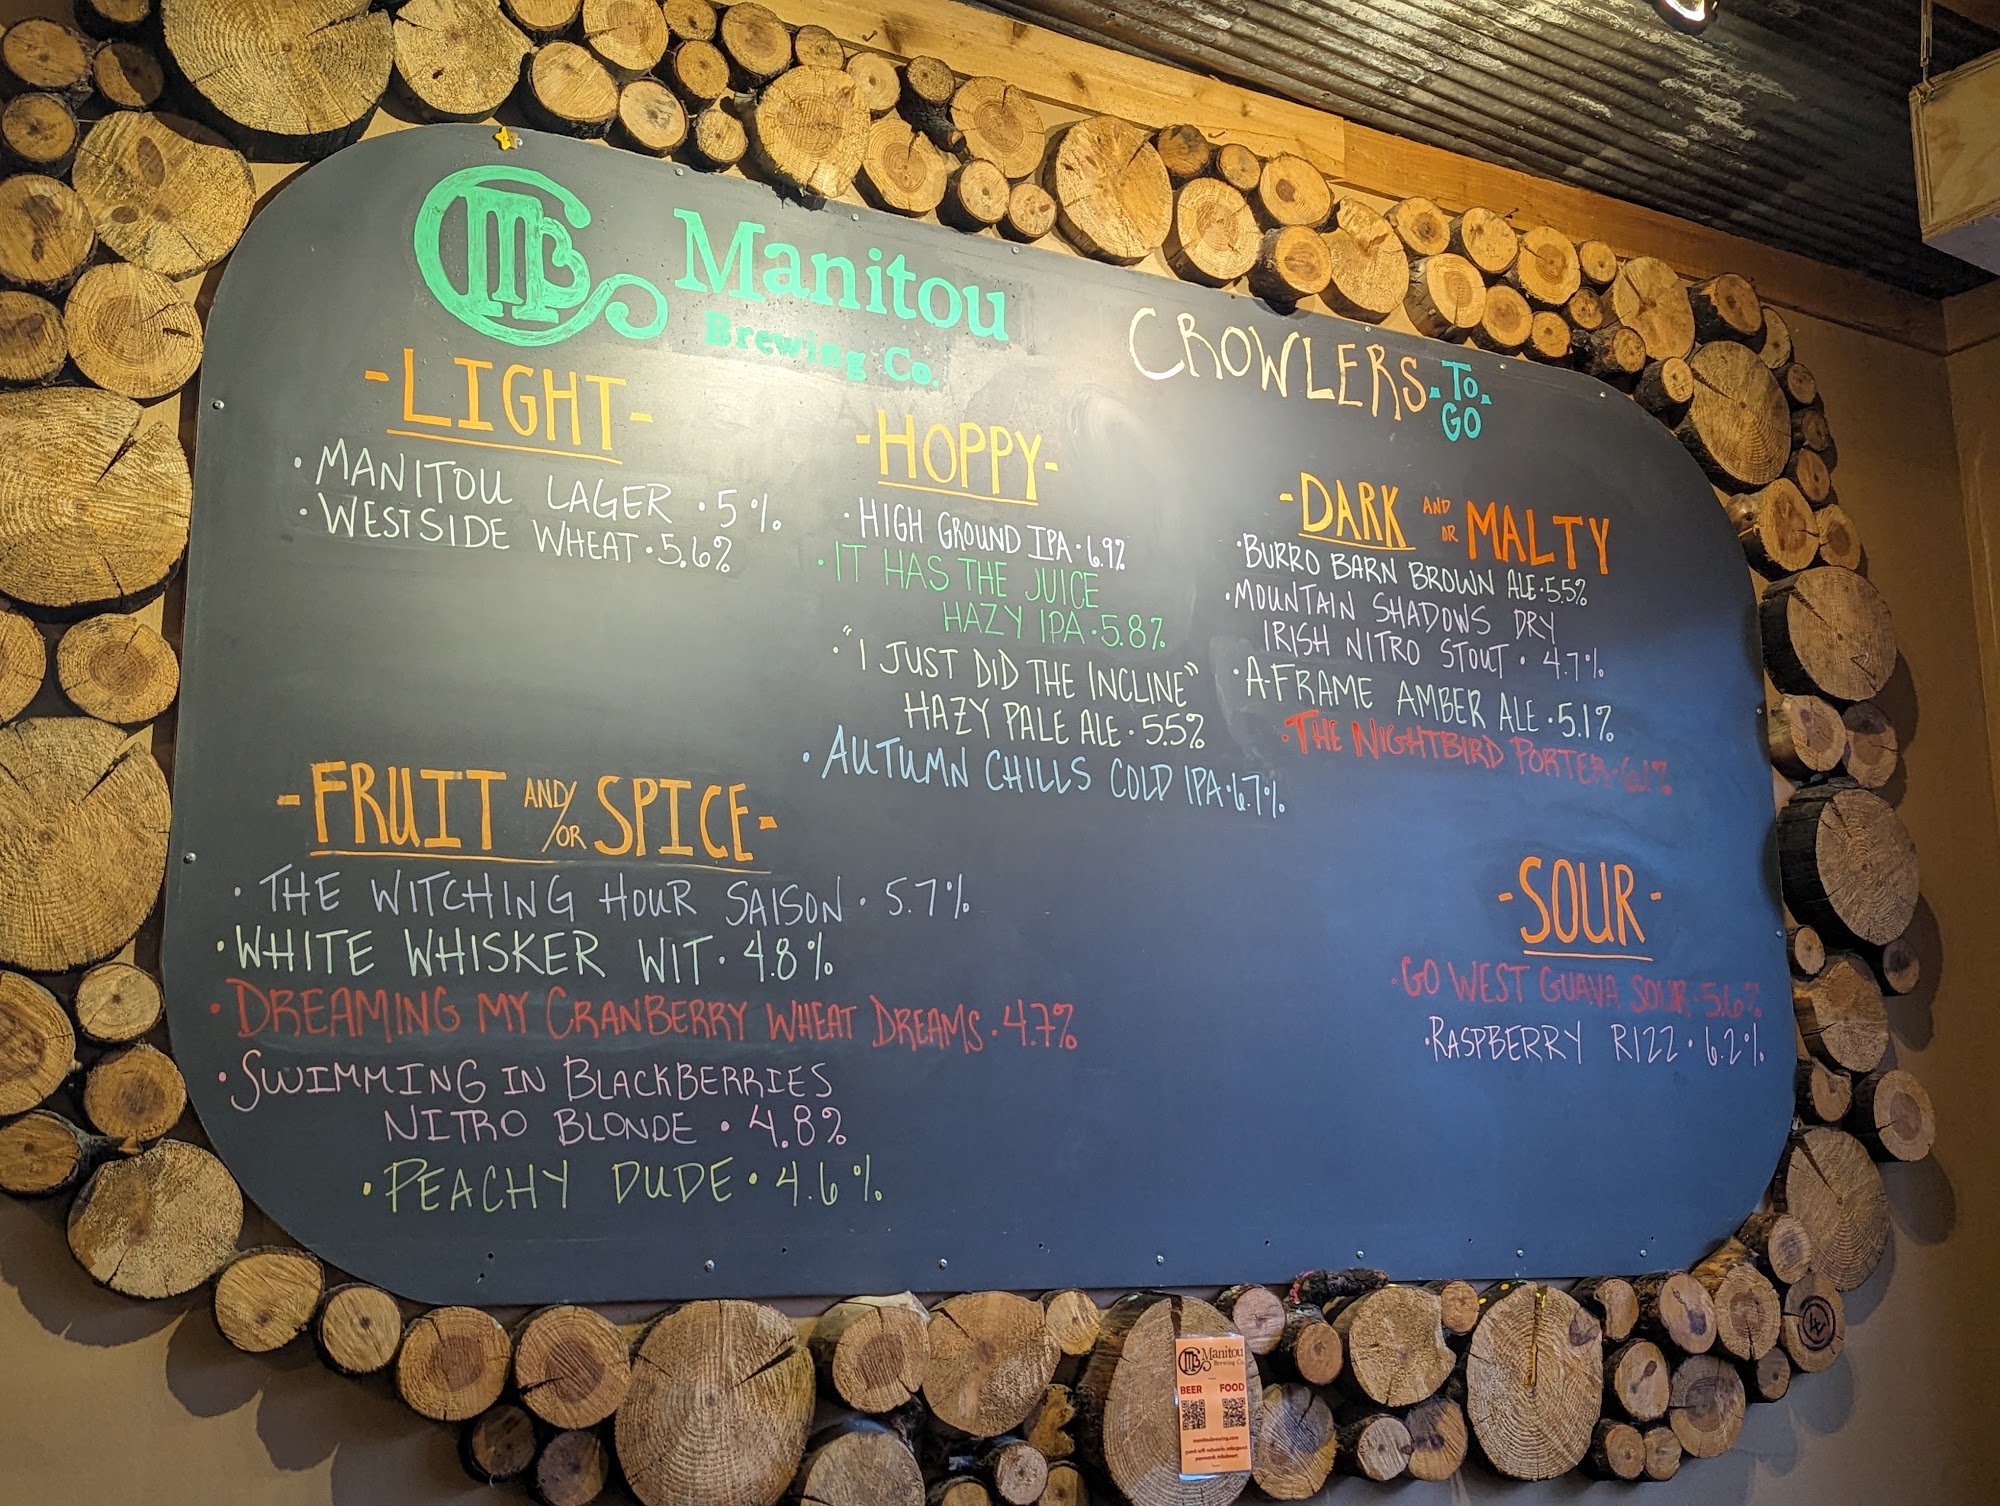 CMB
Manitou
Brewing Co.
CROWLERS TO GO
-LIGHT-
• MANITOU LAGER • 5%
• WESTSIDE WHEAT • 5.6%
-HOPPY-
• HIGH GROUND IPA • 6.9%
• IT HAS THE JUICE
HAZY IPA • 5.8%
• "I JUST DID THE INCLINE"
HAZY PALE ALE • 5.5%
• AUTUMN CHILLS COLD IPA • 6.7%
-DARK AND OR MALTY
• BURRO BARN BROWN ALE • 5.5%
• MOUNTAIN SHADOWS DRY
IRISH NITRO STOUT • 4.7%
• A-FRAME AMBER ALE • 5.1%
• THE NIGHTBIRD PORTER • 6.1%
-FRUIT AND/OR SPICE-
• THE WITCHING HOUR SAISON • 5.7%
• WHITE WHISKER WIT • 4.8%
• DREAMING MY CRANBERRY WHEAT DREAMS • 4.7%
• SWIMMING IN BLACKBERRIES
NITRO BLONDE • 4.8%
• PEACHY DUDE • 4.6%
-SOUR-
• GO WEST GUAVA SOUR • 5.6%
• RASPBERRY RIZZ • 6.2%
Manitou
Brewing Co.
BEER FOOD